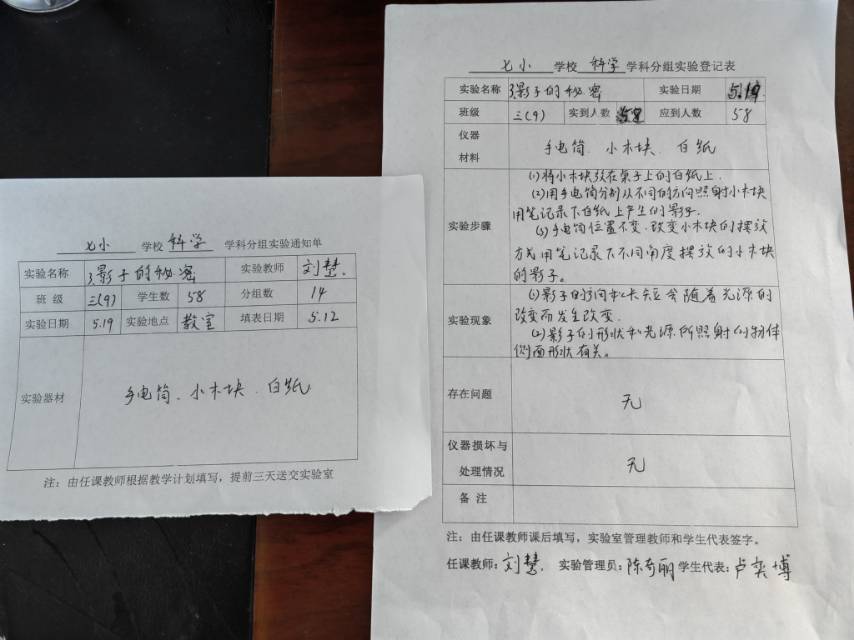 七小 学校 科学 学科分组实验通知单
实验名称 影子的秘密 实验教师 刘慧
班 级 三(9) 学生数 58 分组数 14
实验日期 5.19 实验地点 教室 填表日期 5.12
实验器材 手电筒、小木块、白纸
注：由任课教师根据教学计划填写，提前三天送交实验室
七小 学校 科学 学科分组实验登记表
实验名称 影子的秘密 实验日期
班级 三(9) 实到人数 应到人数 58
仪器
材料
手电筒、小木块、白纸
实验步骤
(1)将小木块放在桌子上的白纸上.
(2)用手电筒分别从不同的方向照射小木块
用笔记录下白纸上产生的影子.
(3)手电筒位置不变.改变小木块的摆放
方式用笔记录下不同角度摆放的小木块
的影子。
实验现象
(1)影子的方向和长短会随着光源的
改变而发生改变.
(2)影子的形状和光源所照射的物体
侧面形状有关。
存在问题 无
仪器损坏与
处理情况
无
备 注
注：由任课教师课后填写，实验室管理教师和学生代表签字。
任课教师：刘慧. 实验管理员：陈奇丽 学生代表：卢奕博